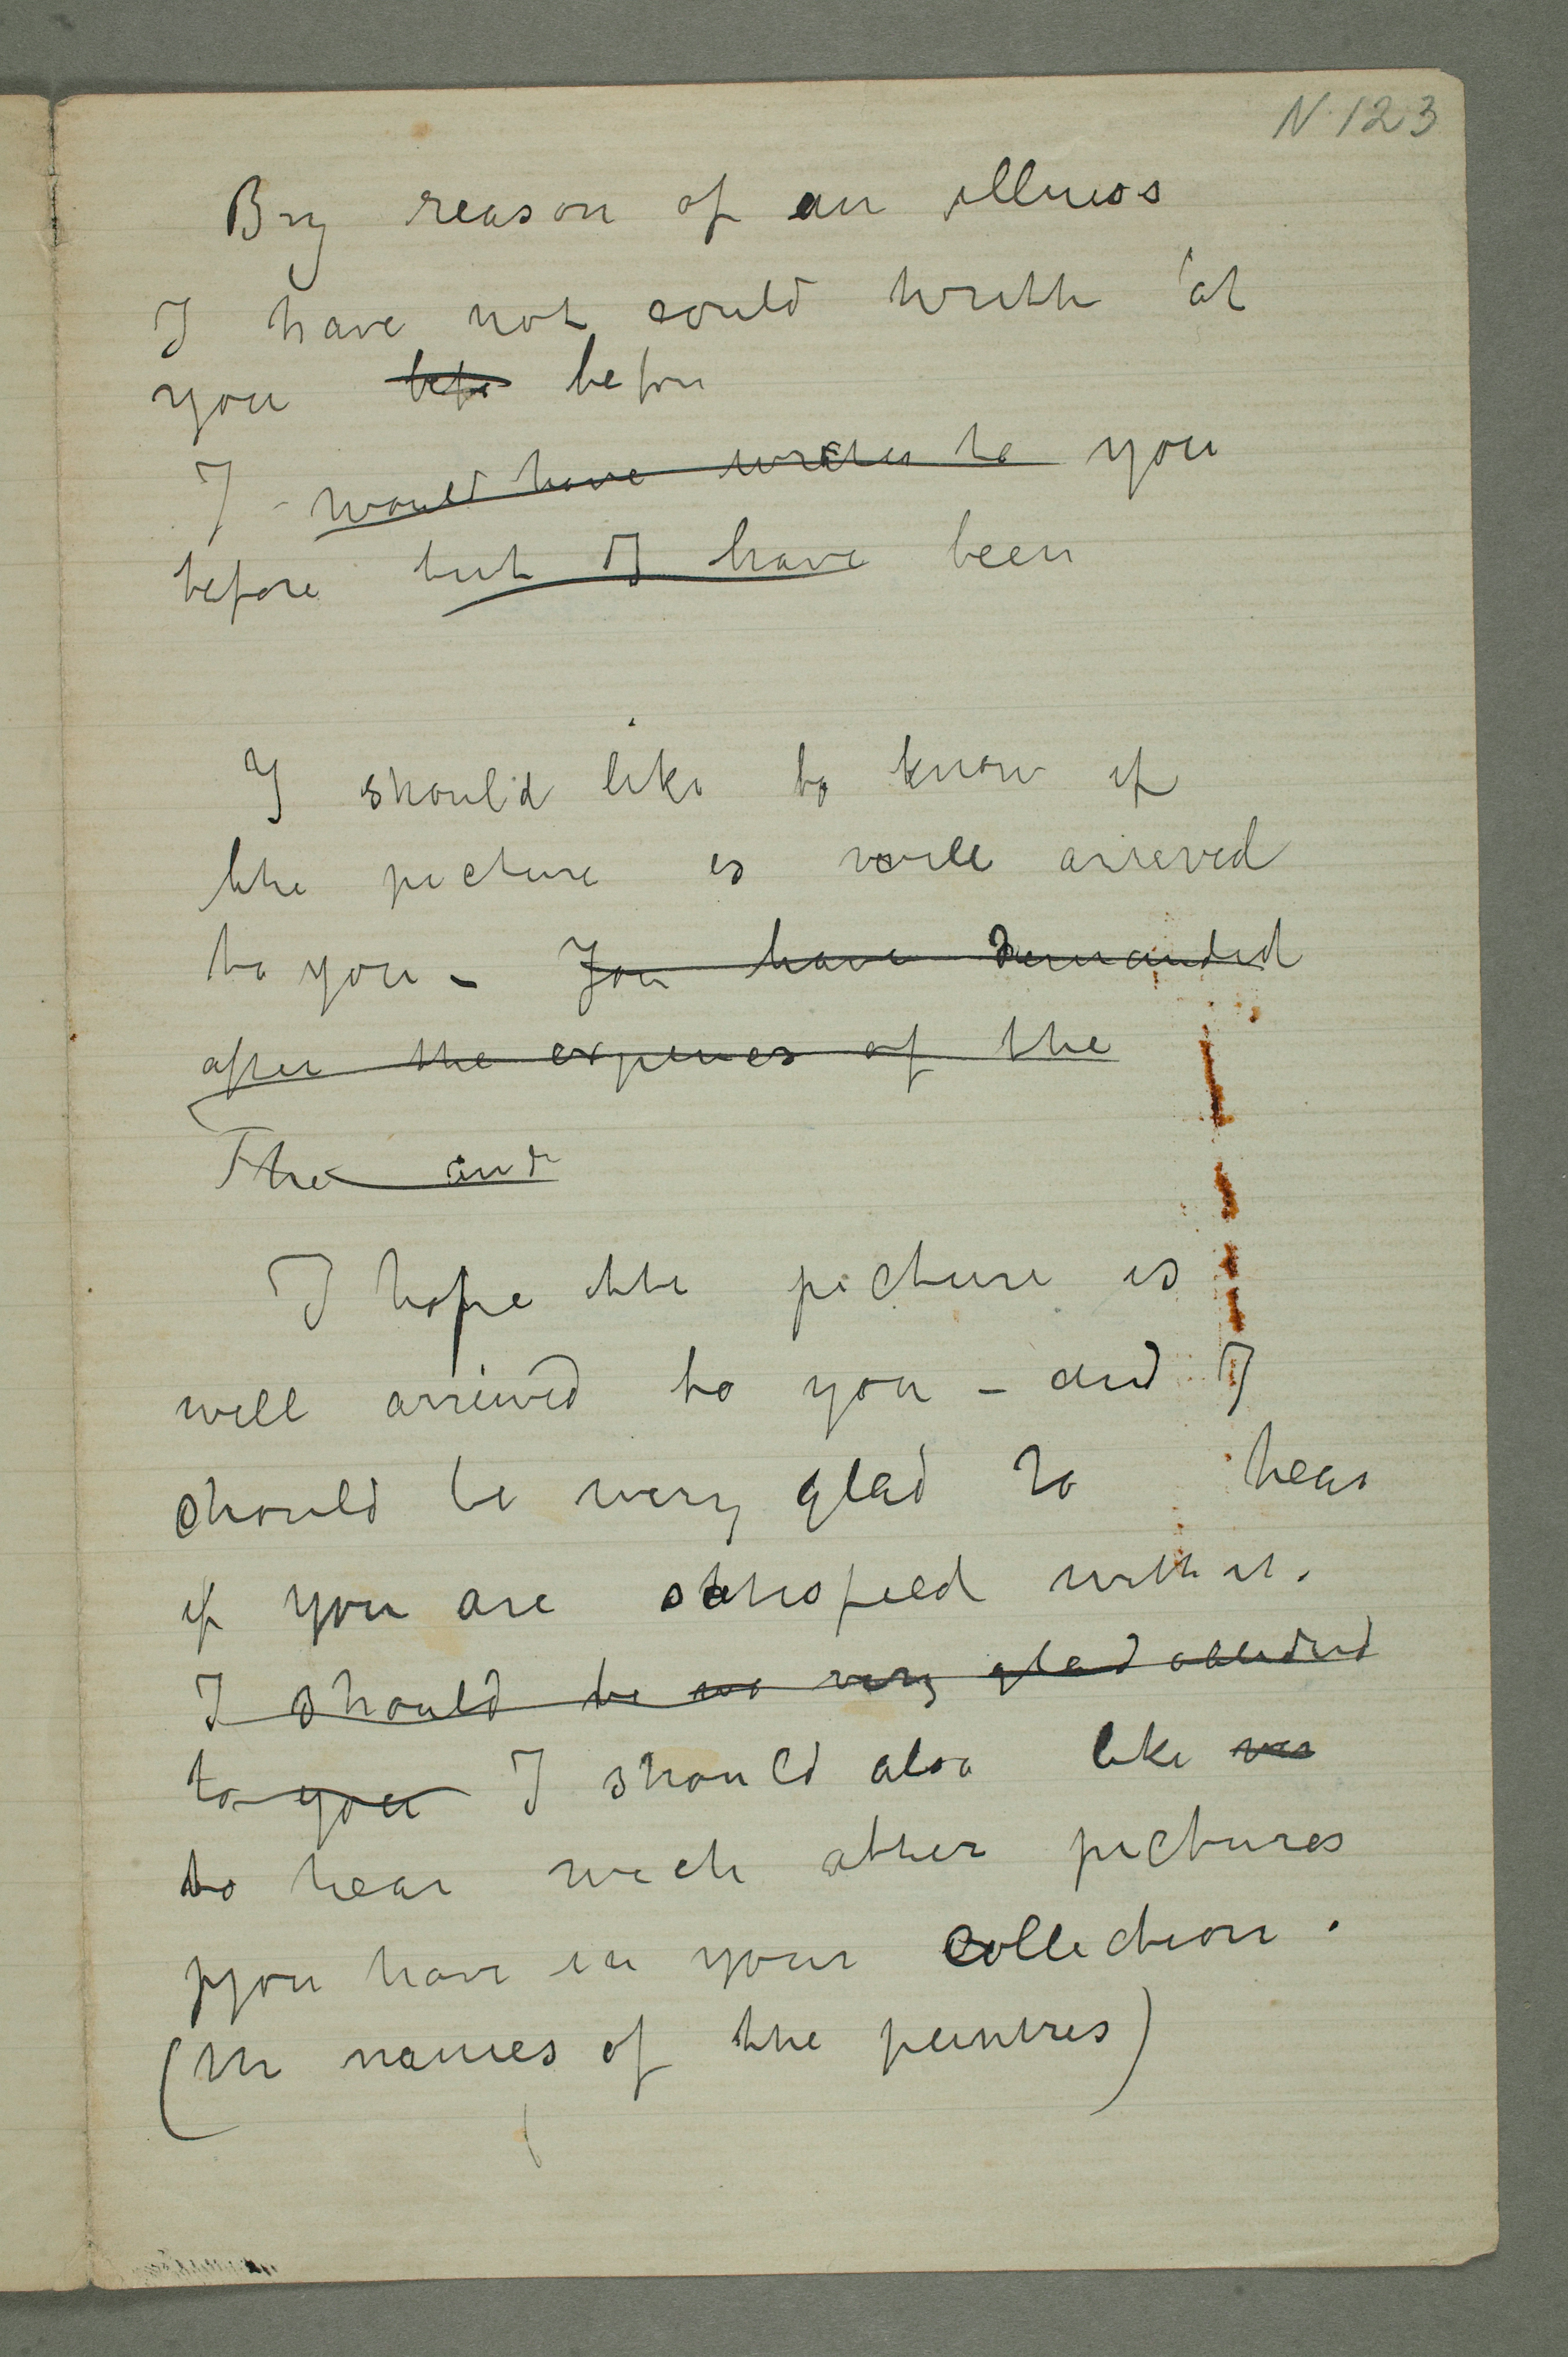 N 123
By reason of an illness
I have not could writte at
you befo befor
I would have written to you
before but I have been
I should like to know if
the picture is well arrived
to you – You have demanded
after the expences of the
The and
I hope the picture is
well arrived to you – and I
should be very glad to hear
if you are satisfied with it.
I should be very glad
to you I should also like
to hear wich other pictures
you have in your collection.
(the names of the peintres)